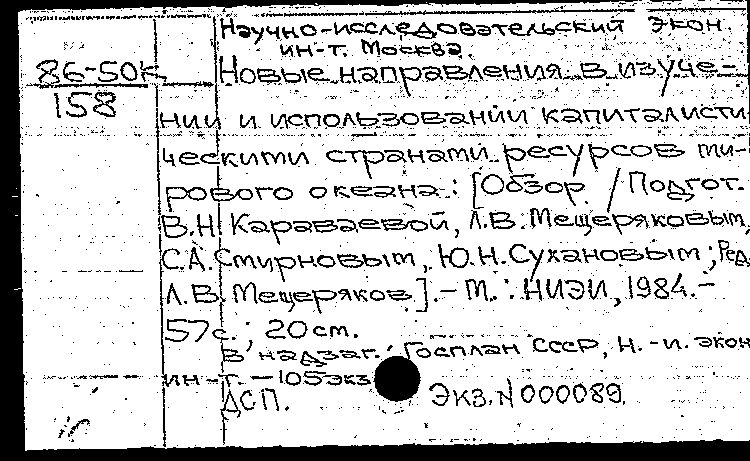 Научно-исследовательский экон.
ин-т. Москва.
86-50к Новые направления в изуче-
158
нии и использовании капиталисти
ческими странами ресурсов ми-
рового океана : [Обзор / Подгот.
В.Н. Караваевой, Л.В. Мещеряковым,
С.А. Смирновым, Ю.Н. Сухановым; Ред.
Л.В. Мещеряков]. - М. : НИЭИ, 1984. -
57с. ; 20 см.
В надзаг.: Госплан СССР, Н.-и. экон
ин-т. - 105 экз
ДСП. Экз. N 000089.